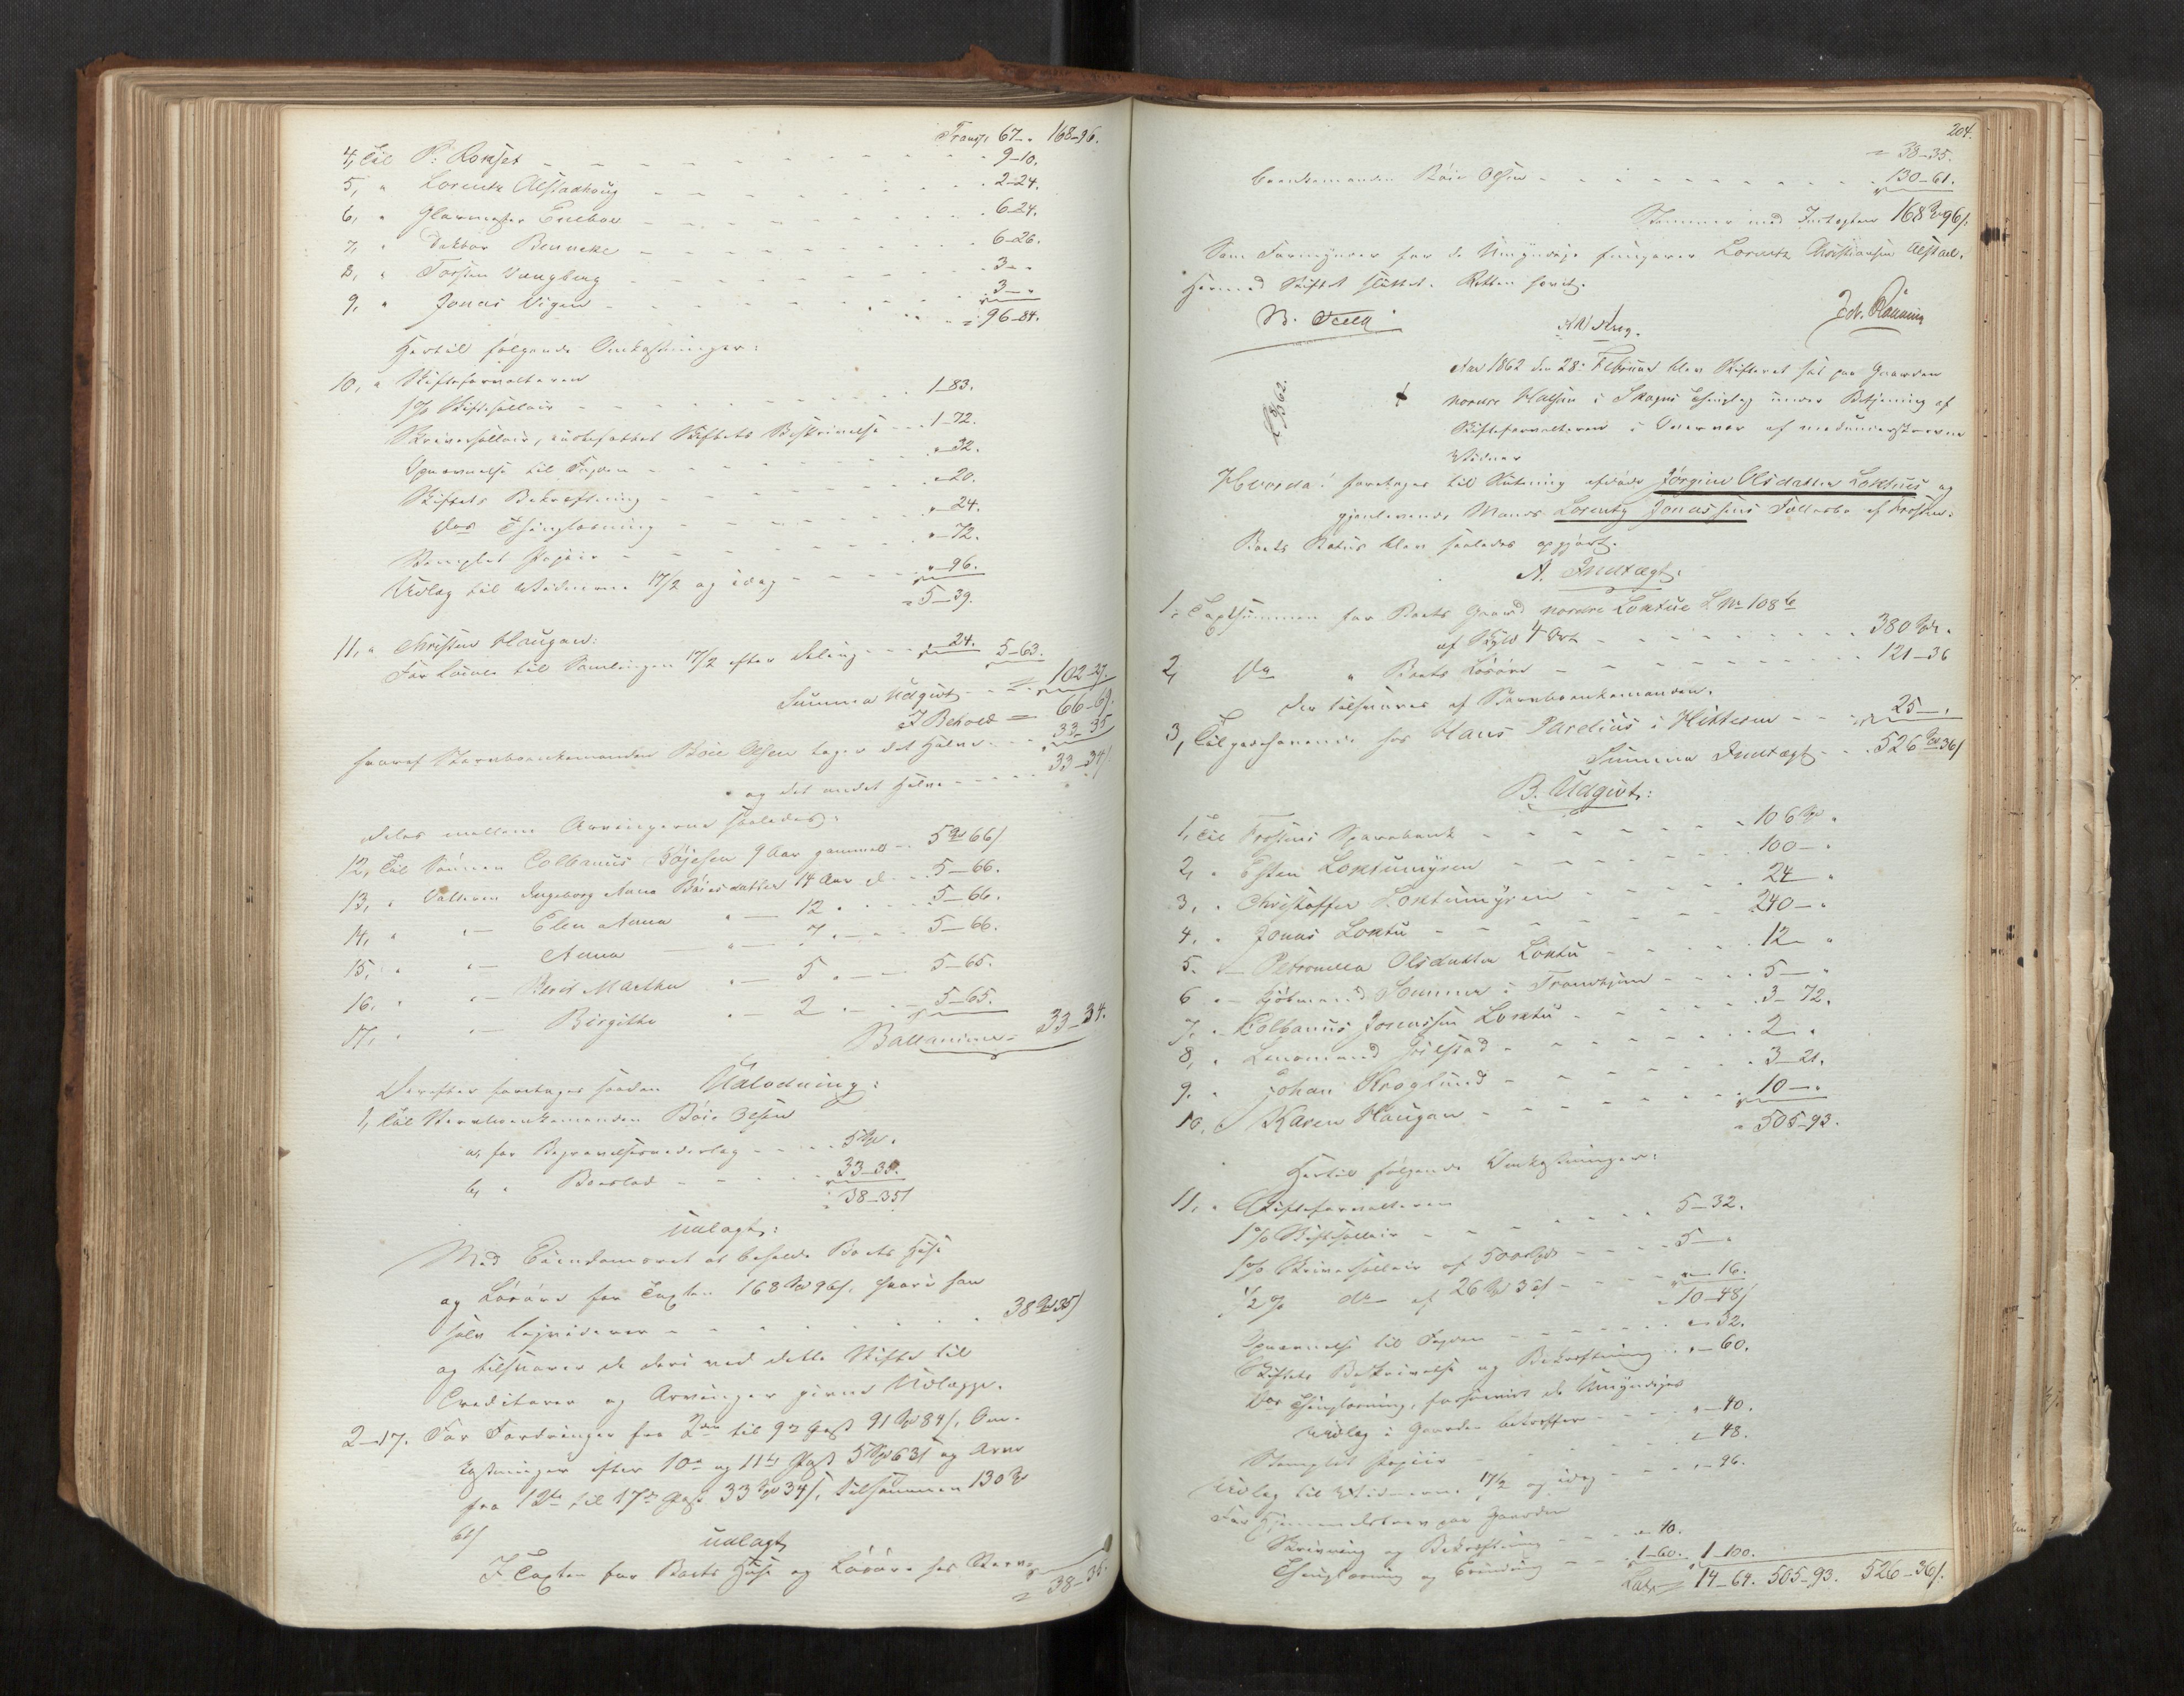 Transp. 67 - " 168-96.
4, Til P: Ronset - - - 9-10.
5, " Lorentz Alstadhoug - - - 2-24.
6, " Glarmester Eneboe - - - 6-24.
7, " Doktor Benneke - - - 6-26.
8, " Torsten Vangberg - - - 3- "
9, " Jonas Vigen - - - 3- "
= 96-84.
Hertil følgende Omkostninger:
10, " Skifteforvalteren
1 % Skiftesallair - - - 1-83.
Skriversallair, indbefattet Skiftets Beskrivelse - - 1-72.
til Fogden - - - "-32.
Skiftets Bekræftning - - - "-20.
Do Thinglæsning - - - "-24.
Stemplet Papiir - - - "-72.
Udlæg til Vidnerne 17/2 og idag - - - "-96.
= 5-39.
11, " Christen Haugan:
For til Samlingen 17/2 efter - - "-24. 5-63.
Summa Udgivt - - = 102-27.
I Behold = 66-69.
hvoraf Stervboenkemanden Böie Olsen tager det halve - - 33-35
og det andet halve - - - 33-34/
deles mellem Arvingerne saaledes:
12, Til Sønnen Colbanus Böjesen 9 Aar gammel - 5 Spd 66/
13, " Datteren Ingeborg Anna Böiesdatter 14 Aar d. - 5-66.
14, " " - Elen Anna " - 12 " - 5-66.
15, " " - Anna " - 7 " - 5-66.
16, " " - Berit Martha " - 5 " - 5-65.
17, " " - Birgitte " - 2 " - 5-65.
Ballancerer - 33-34.
Derefter foretoges saadan Udlodning:
1, Til Stervboenkemanden Böie Olsen
a, for Begravelsesvederlag - - - 5 Spd "
b, " Boeslod - - - 33-35.
38-35/
udlagt:
Med Eiendomsret at beholde Boets Huse
og Løsøre for Taxten 168 Spd 96/. hvori han
selv - - - 38 Spd 35/
og tilsvarer de deri ved dette Skifte til
Creditorer og Arvinger givne Udlægge.
2-17. For Fordringer fra 2den til 9de Post 91 Spd 84/, Om-
kostninger efter 10de og 11te Post 5 Spd 63/ og Arv
fra 12te til 17de Post 33 Spd 34/, tilsammen 130 Spd
61/
udlagt
I Taxten for Boets Huse og Løsøre hos Sterv-
= 38-35.
204.
= 38-35.
boenkemanden Böie Olsen - - - 130-61.
Stemmer med Indtægten 168 Spd 96/.
Som Formynder for de Umyndige fungerer Lorentz Christiansen Alstad.
Hermed Skiftet sluttet. Retten hævet.
Aar 1862 den 28. Februar blev Skifteret sat paa Gaarden
nordre Halsen i Skogns Thinglag under Betjening af
Skifteforvalteren i Overvær af medunderskrevne
Vidner
Hvorda: foretoges til Slutning afdøde Jörgine Olsdatter Loktues og
gjenlevende Mands Lorentz Jonassens Fællesbo af Frosten.
Boets Status blev saaledes opgjort.
A. Indtægt:
1, Taxtsummen for Boets Gaard nordre Loktue L. No 108 b
af Skyld 4 Ort - - - 380 Spd "
2, Do " Boets Løsøre - - - 121-36
der tilsvares af Stervboenkemanden.
3, Tilgodehavende hos Hans Parelius i Hitteren - - 25- "
Summa Indtægt - - 526 Spd 36/
B. Udgivt:
1, Til Frostens Sparebank - - - 106 Spd "
2, " Esten Loktumyren - - - 100- "
3, " Christoffer Loktumyren - - - 24 "
4, " Jonas Loktu - - - 240- "
5. " Petronella Olsdatter Loktu - - - 12- "
6 " Kjøbmand Sommer i Trondhjem - - - 5- "
7, " Colbanus Jonassen Loktu - - - 3-72.
8, " Lensmand Grilstad - - - 2- "
9. " Johan Kroglund - - - 3-21.
10, " Karen Haugan - - - 10- "
= 505-93.
Hertil følgende Omkostninger:
11, " Skifteforvalteren
1 % Skiftesallair - - - 5-32.
1 % Skriversallair af 500 Spd - - - 5- "
1/2 % do af 26 Spd 36/ - - - "-16.
= 10-48/
til Fogden - - - "-32.
Skiftets Beskrivelse og Bekræftning - "-60.
Dos Thinglæsning, forsaavidt de Umyndiges
Udlæg i Gaarden betræffer - - - "-40.
Stemplet Papiir - - - "-48.
Udlæg til Vidnerne 17/2 og idag - - - "-96.
For Hjemmelsbrev paa Gaarden
Skrivning og Bekræftning - - - "-40.
Thinglæsning og - - - 1-60. 1-100.
Lats 14-64. 505-93. 526-36/.